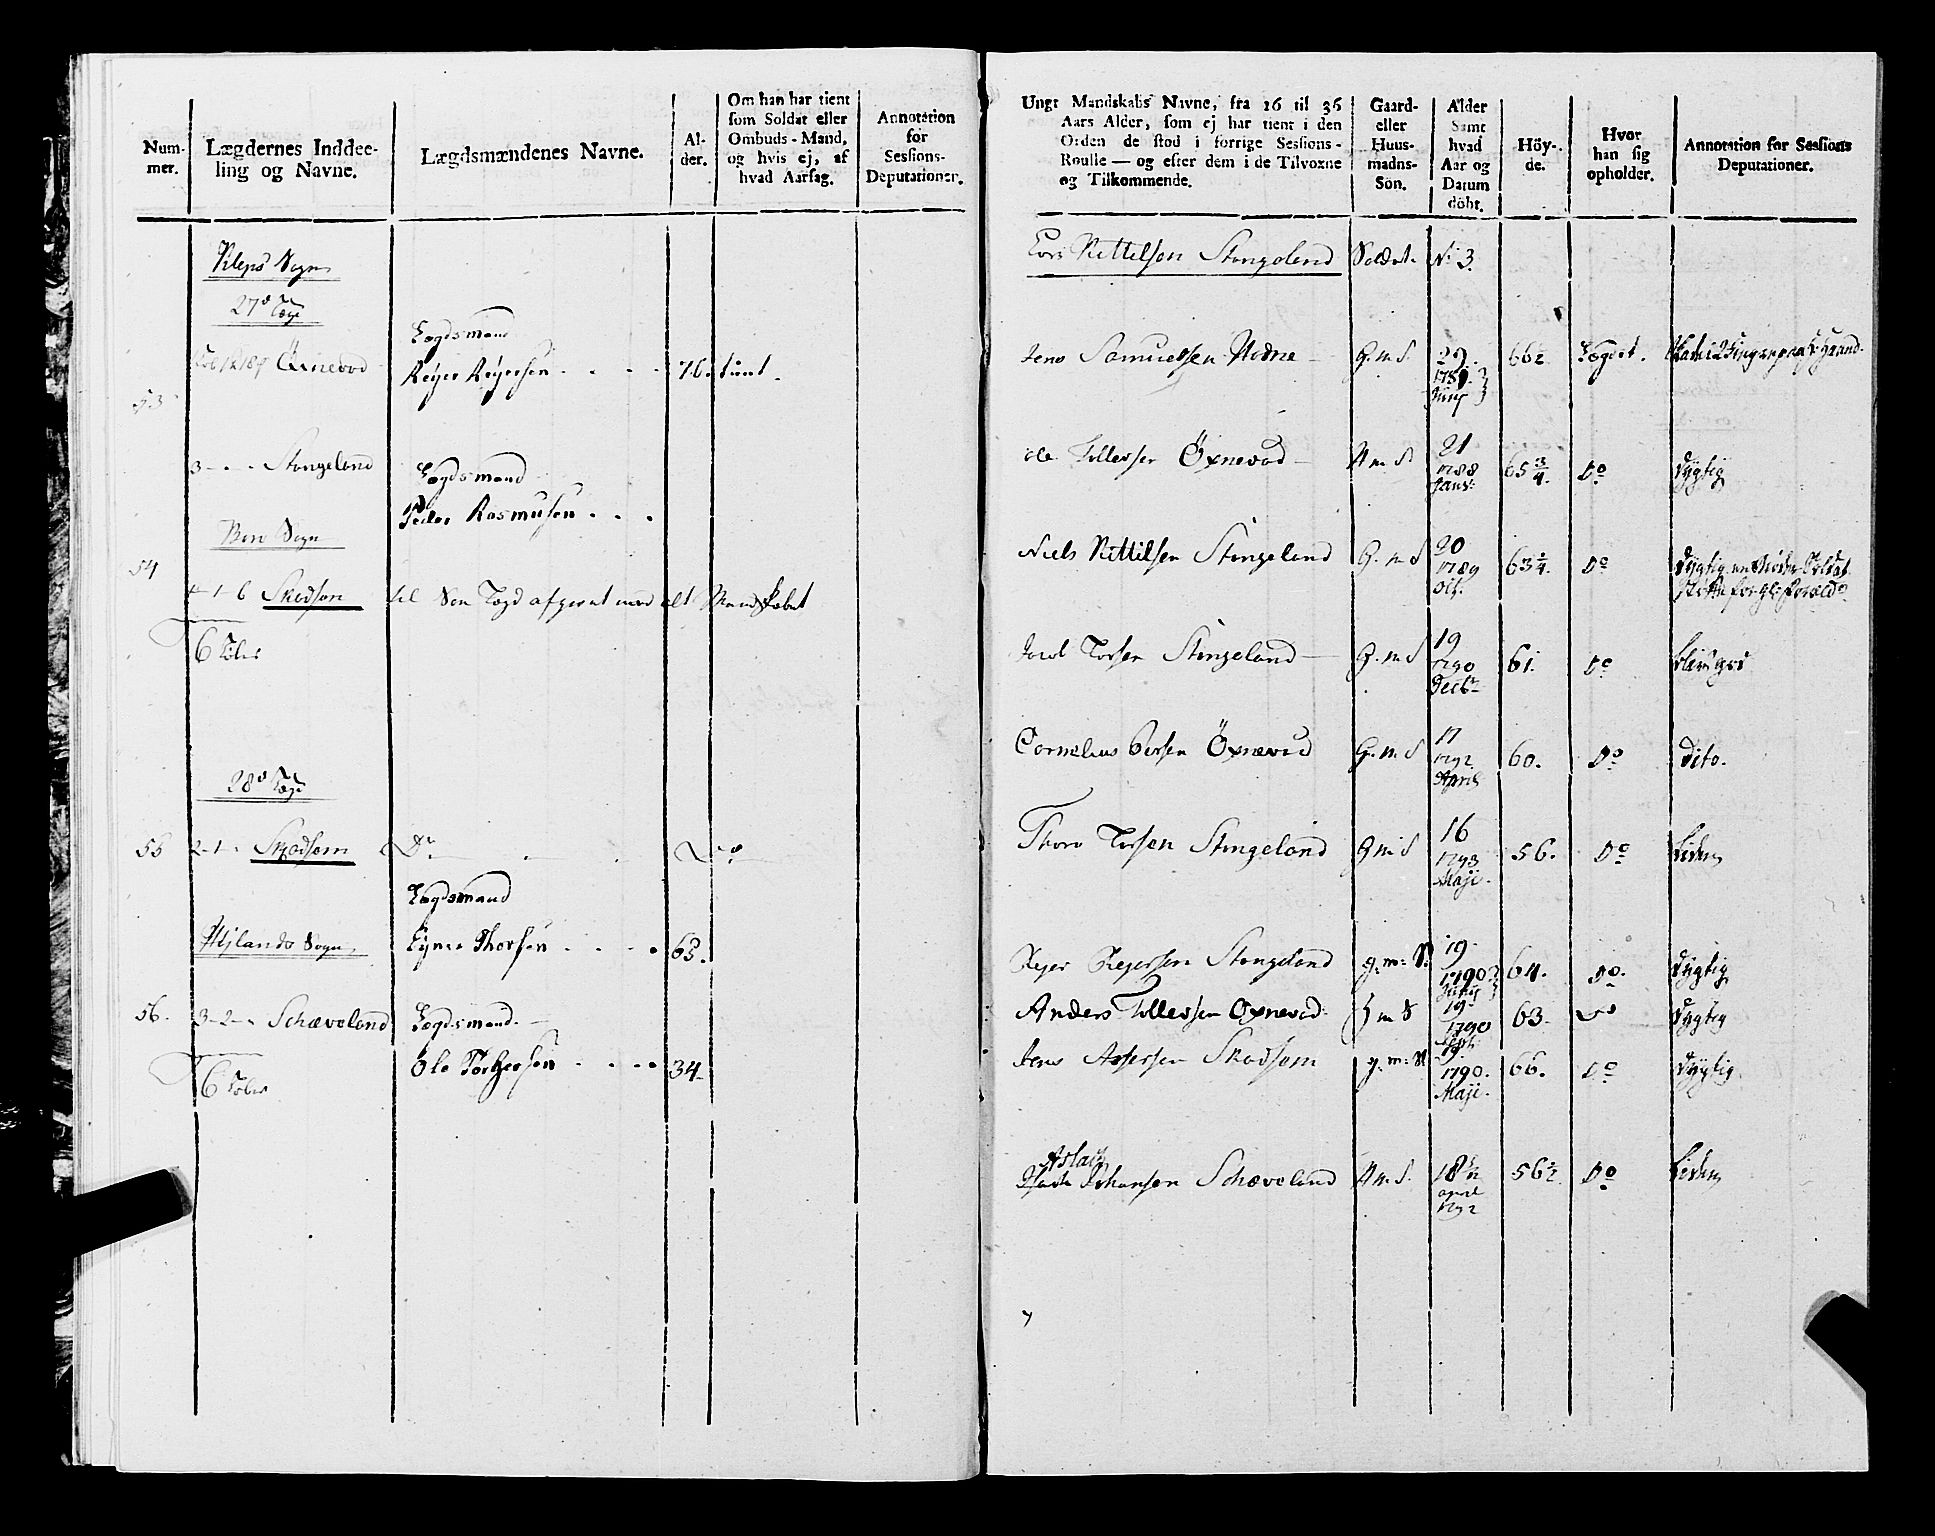 Num-
mer.
Lægdernes Inddee-
ling og Navne.
Lægdsmændenes Navne.
Al-
der.
Om han har tient
som Soldat eller
Ombuds-Mand,
og hvis ej, af
hvad Aarsag.
Annotation
for
Sessions-
Deputationer.
Kleps Sogn
27de Læge
Øxnevad
Lægdsmand
Reyer Reyersen 76 tient
53
3 Stangeland
Lægdsmand
Peder Rasmusen
Bore Sogn
54
1-6 Skadsem til den Lægd afgivet med alt Mandskabet
6
28de Læge
55 2-1 Skadsem Do Do
Lægdsmand
Højlands Sogn Thorsen 65.
56. 3-2 Schæveland Lægdsmand
Ole Torgersen 34
6
Ungt Mandskabs Navne, fra 16 til 36
Aars Alder, som ej har tient i den
Orden de stod i forrige Sessions-
Roulle — og efter dem i de Tilvoxne
og Tilkommende.
Gaard-
eller
Huus-
mands-
Sön.
Alder
Samt
hvad
Aar og
Datum
döbt.
Höy-
de.
Hvor
han sig
opholder.
Annotation for Sessions
Deputationer.
Lars Kittilsen Stangeland Soldat No 3.
Jens Samuelsen Hodne G.m.S. 22
66½ Lægdet.
Ole Tollevsen Øxnevad H m S 21
1788
Janv:
65¾. Do Dygtig
Niels Kittilsen Stangeland G.m S 20
1789
63¼. Do Dygtig
Jacob Torsen Stangeland G.m S 19
1790
Decbr
61. Do
Cornelius Persen Øxnevad G.m.S 17
1792
April
60. Do Dito.
Thore Torsen Stangeland G m S 16
1793
Maji.
56. Do Liden
Rejer Rejersen Stangeland g.m:S. 19.
1790
64. Do. Dygtig
Anders Tollevsen Oxnevad H m S 19
1790
Sept:
63. Do Dygtig
Jens Assersen Skadsem g.m:S. 19.
1790.
Maji.
66. Do Dygtig.
Aslach
Johansen Schæveland H m S. 18
1792
56½. Do Liden